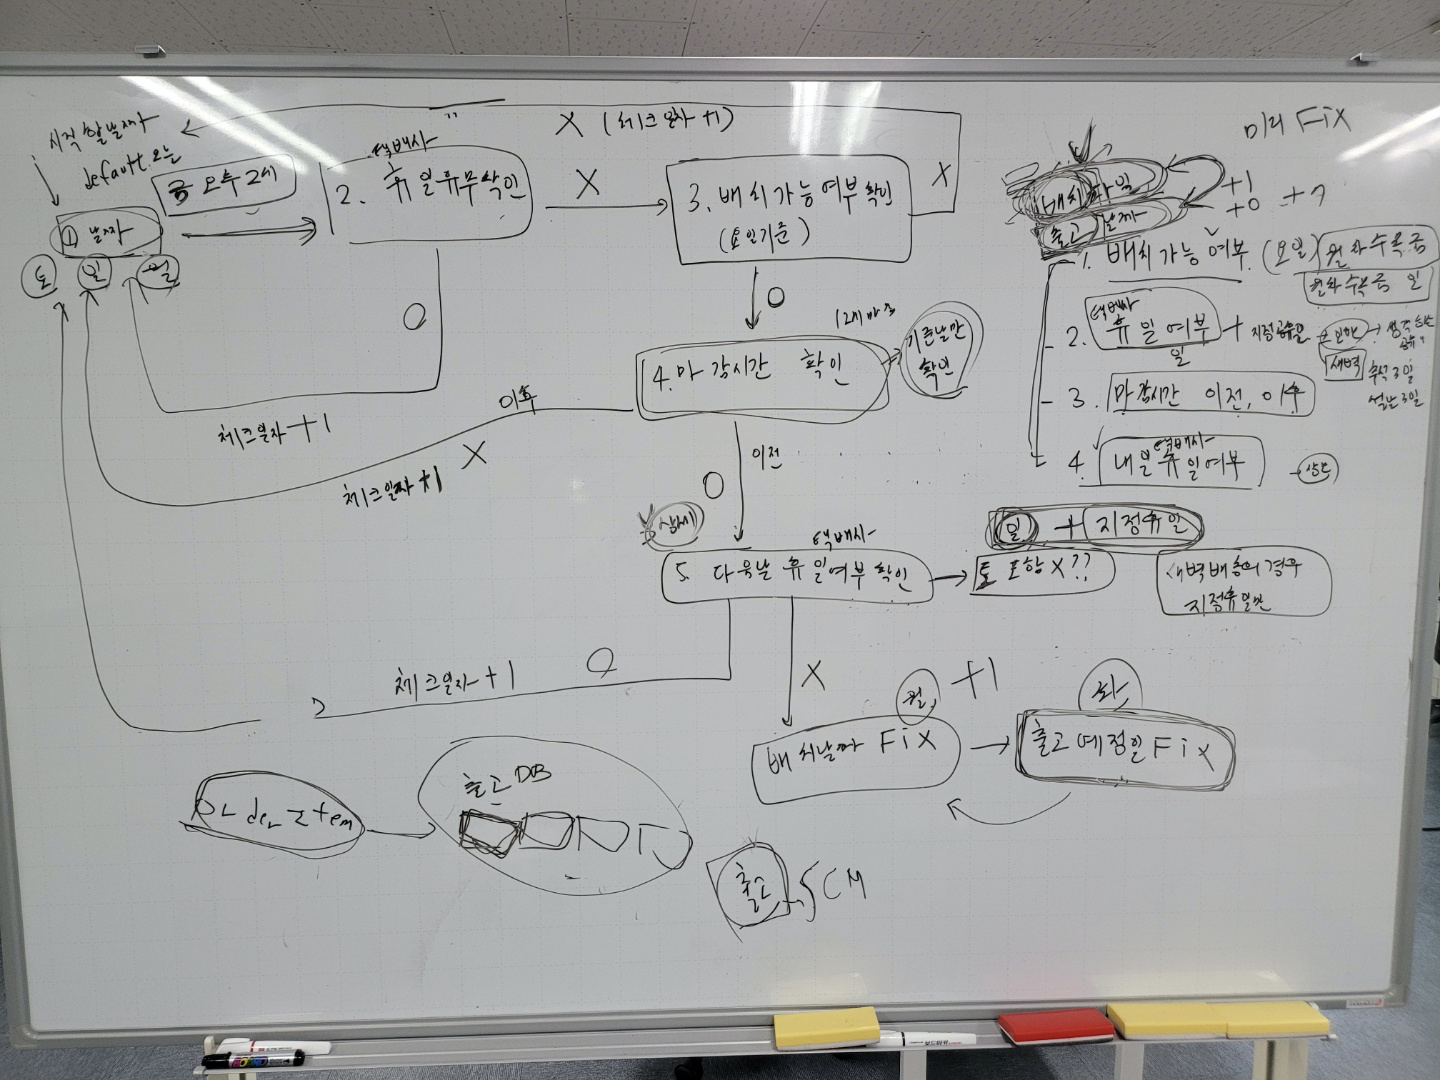 시작할날짜
default.오늘
① 날짜
금 오후 2시
토 일 월
택배사
2. 휴일휴무확인
X
O
체크일자+1
X (체크일자+1)
3. 배치가능여부확인
(요일기준)
X
O
12시마감
4. 마감시간 확인
기준날만
확인
이후
X
체크일자+1
이전
O
상세
택배사
5. 다음날 휴일여부확인
토 포함X??
일 + 지정휴일
새벽배송의 경우
지정휴일만
O
체크일자+1
X
배치날짜 FiX
월
+1
화
출고예정일FiX
Order Item
출고 DB
출고
SCM
미리 FiX
배치 파일
출고 날짜
+1
+0
1. 배치가능여부. (요일) 월화수목금
월화수목금 일
택배사
2. 휴일여부 + 지정공휴일
일
새벽
추석3일
설날3일
3. 마감시간 이전, 이후
택배사
4. 내일휴일여부